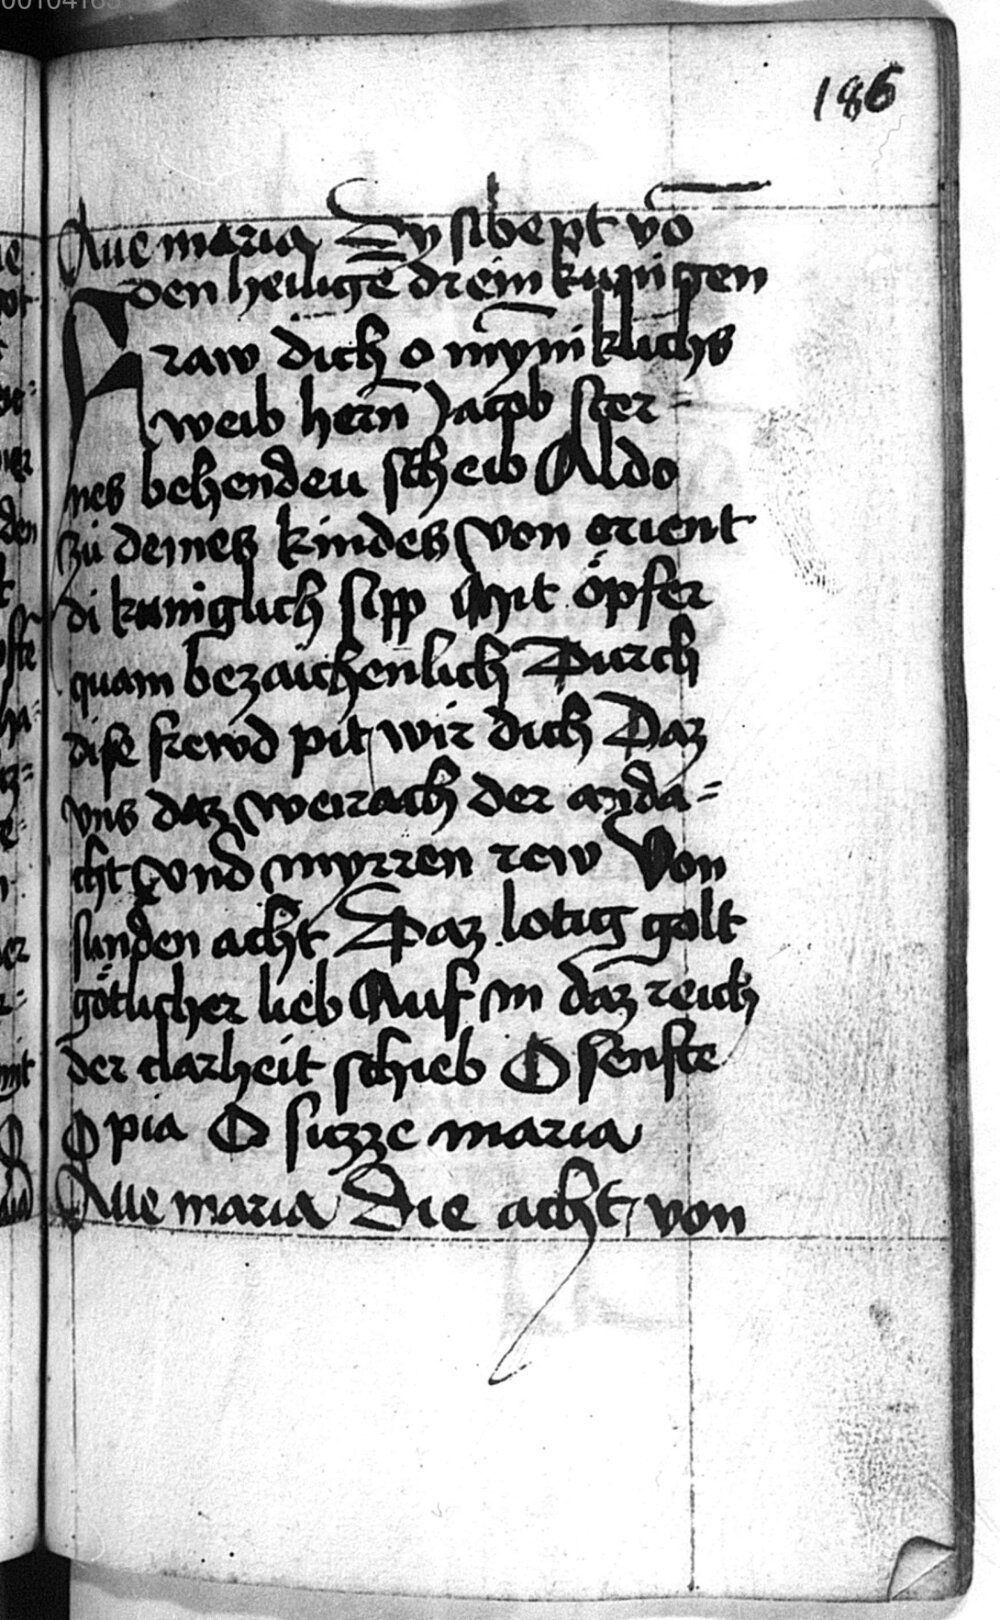 186
Aue maria Dy sibept vō
den heiligē drein kunigen
Fraw dich o mȳniklichs
weib hern̄ Jacob ster=
nes behenden scheib Aldo
zu deines kindes von orient
di kuniglich sipp Mit öpfer
quam bezaichenlich Durch
dise frewd pit wir dich Daz
vns daz weirach der anda=
cht vnd myrren rew Von
sunden acht Daz lotig golt
götlicher lieb Auf in daz reich
der clarheit schieb O senfte
O pia O suzze maria
Aue maria Die acht von